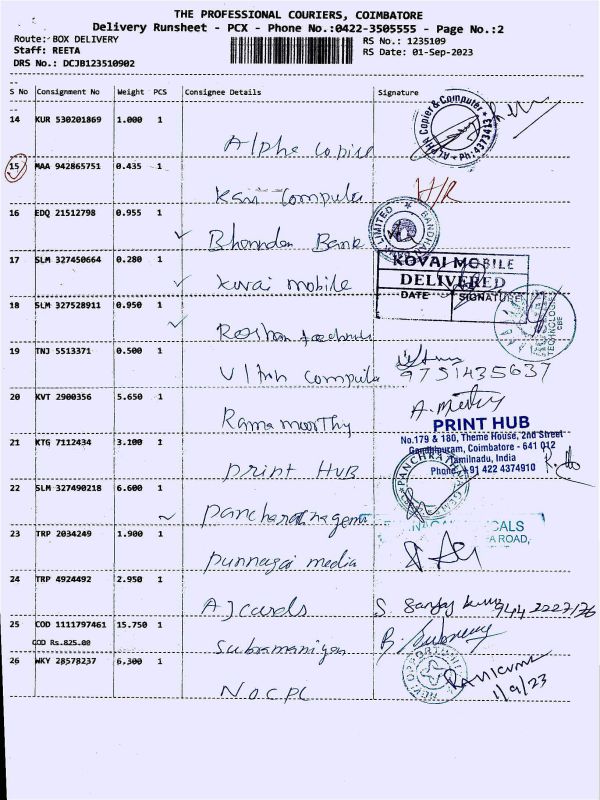 THE PROFESSIONAL COURIERS, COIMBATORE
Delivery Runsheet - PCX - Phone No.:0422-3505555 - Page No.:2
Route: BOX DELIVERY
RS No.: 1235109
Staff: REETA
RS Date: 01-Sep-2023
DRS No.: DCJB123510902
S No Consignment No Weight PCS Consignee Details Signature
14 KUR 530201869 1.000 1
Copier & Computer
ALPHA
Ph:4373413
15 MAA 942865751 0.435 1
Computer
16 EDQ 21512798 0.955 1
LIMITED BANDHAN
Bank
17 SLM 327450664 0.280 1
KOVAI MOBILE
DELIVERED
DATE SIGNATURE
Kovai mobile
18 SLM 327528911 0.950 1
TECHNOLOGIES
CBE
Roshan
19 TNJ 5513371 0.500 1
9751435637
20 KVT 2900356 5.650 1
Rama moorthy
PRINT HUB
No.179 & 180, Theme House, 2nd Street
Gandhipuram, Coimbatore - 641 012
Tamilnadu, India
Phone: +91 422 4374910
21 KTG 7112434 3.100 1
print HUB
22 SLM 327490218 6.600 1
23 TRP 2034249 1.900 1
A ROAD,
punnagai media
24 TRP 4924492 2.950 1
AJ cards
25 COD 1111797461 15.750 1
COD Rs.825.00
Subramaniyan
26 WKY 28578237 6.300 1
1/9/23
N.O.C.P.C